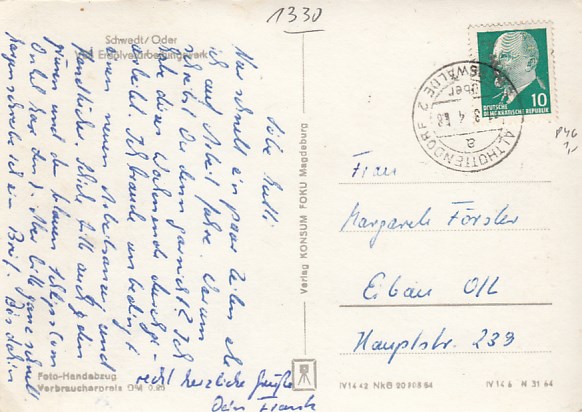 1330
Schwedt/Oder
Erdölverarbeitungswerk
Liebe Mutti!
Nur schnell ein paar Zeilen ehe
ich auf Arbeit fahre. Warum
schreibst Du denn garnicht? Ich
habe dieses Wochenende durchge-
arbeitet. Ich brauche unbedingt
einen neuen Arbeitsanzug und
Handtücher. Schicke bitte auch den
grünen und den blauen
Onkel hat den
schreibe ich ein Brief. Bis dahin
recht herzliche Grüße
Dein Frank
Foto-Handabzug
Verbraucherpreis DM 0,25
Verlag KONSUM FOKU Magdeburg
DEUTSCHE
DEMOKRATISCHE REPUBLIK
10
ALTHÜTTENDORF
über
SWALDE 2
a
P46
1,-
Frau
Margarete Förster
Eibau O/L
Hauptstr. 239
IV 14 42 NkG 208 08 64
IV 14 6 H 31 64